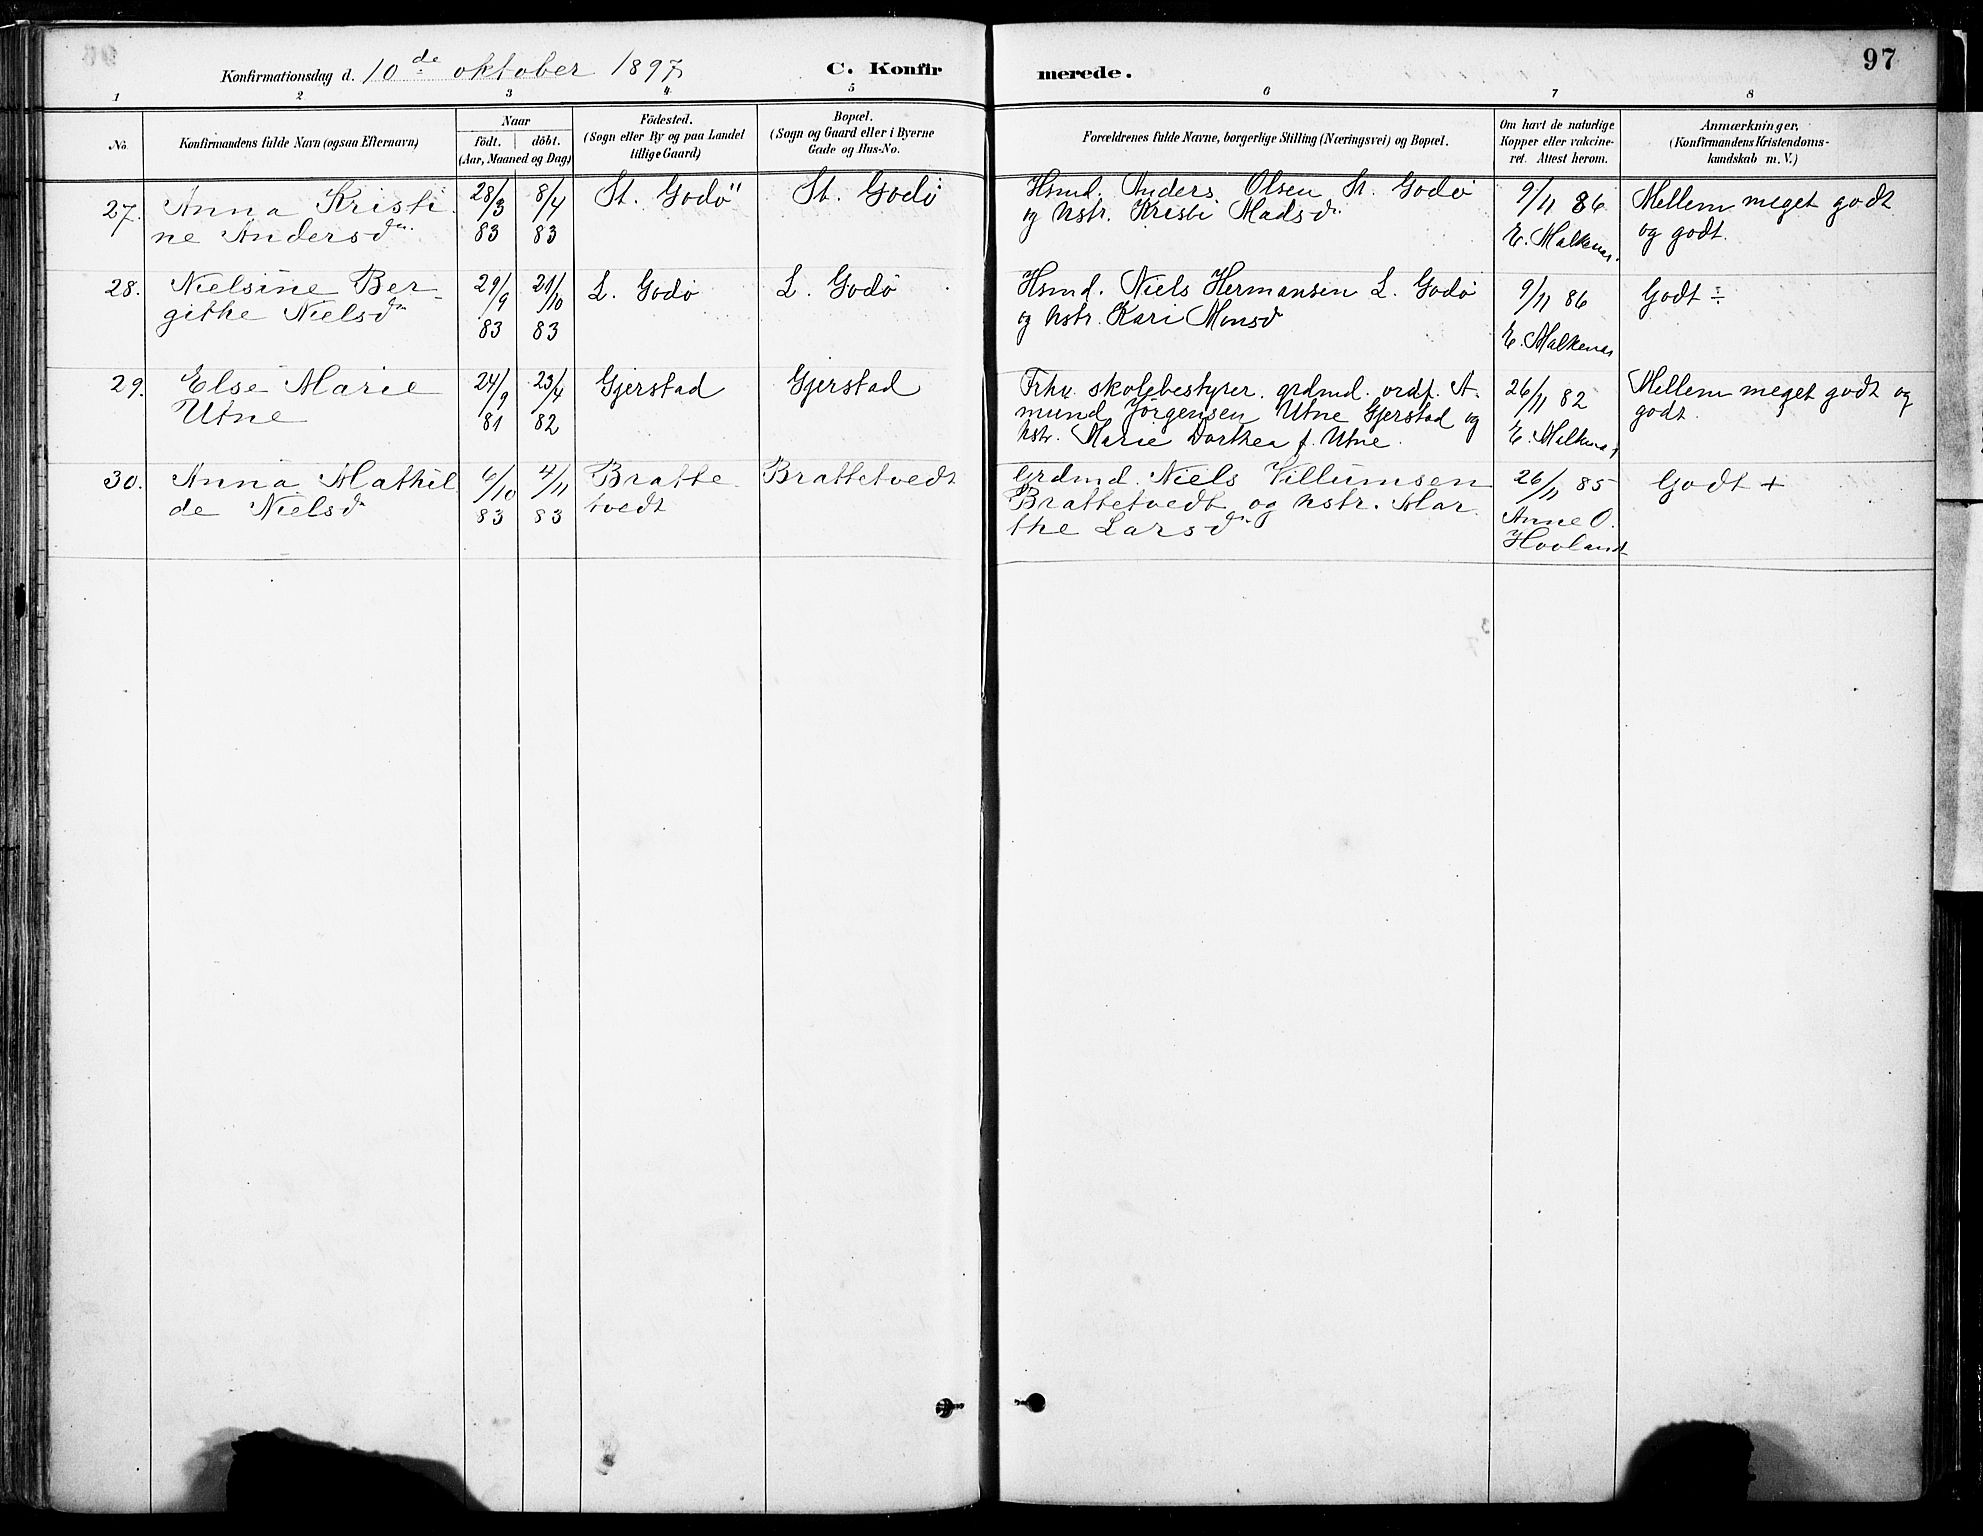 Konfirmationsdag d. 10de oktober 1897
C. Konfirmerede.
97
1 2 3 4 5 6 7 8
No.
Konfirmandens fulde Navn (ogsaa Efternavn)
Naar
födt. döbt.
(Aar, Maaned og Dag)
Födested.
(Sogn eller By og paa Landet
tillige Gaard)
Bopæl.
(Sogn og Gaard eller i Byerne
Gade og Hus-No.
Forældrenes fulde Navne, borgerlige Stilling (Næringsvei) og Bopæl.
Om havt de naturlige
Kopper eller vakcine-
ret. Attest herom.
Anmærkninger,
(Konfirmandens Kristendoms-
kundskab m. V.)
27. Anna Kristi
ne Andersdr.
28/3 83
8/4 83
St. Godö
St. Godö
Hsmd. Anders Olsen St. Godö
og hstr. Kristi Madsdr.
9/11 86
E. Malkenes.
Mellem meget godt
og godt.
28. Nielsine Ber-
githe Nielsdr
29/9 83
21/10 83
L. Godö
L. Godö
Hsmd. Niels Hermansen L. Godö
og hstr. Kari Monsd
9/11 86
E. Malkenes
Godt ÷
29. Else Marie
Utne
24/9 81
23/4 82
Gjerstad
Gjerstad
Frhv. skolebestyrer. grdmd. ordf. A-
mund Jörgensen Utne Gjerstad og
hstr. Marie Dorthea f. Utne.
26/11 82
E. Malkenes
Mellem meget godt og
godt.
30. Anna Mathil
de Nielsdr
6/10 83
4/11 83
Bratte
tvedt
Brattetvedt
Grdmd. Niels Villumsen
Brattetvedt og hstr. Mar
the Larsdr.
26/11 85
Anne O.
Hovland
Godt +